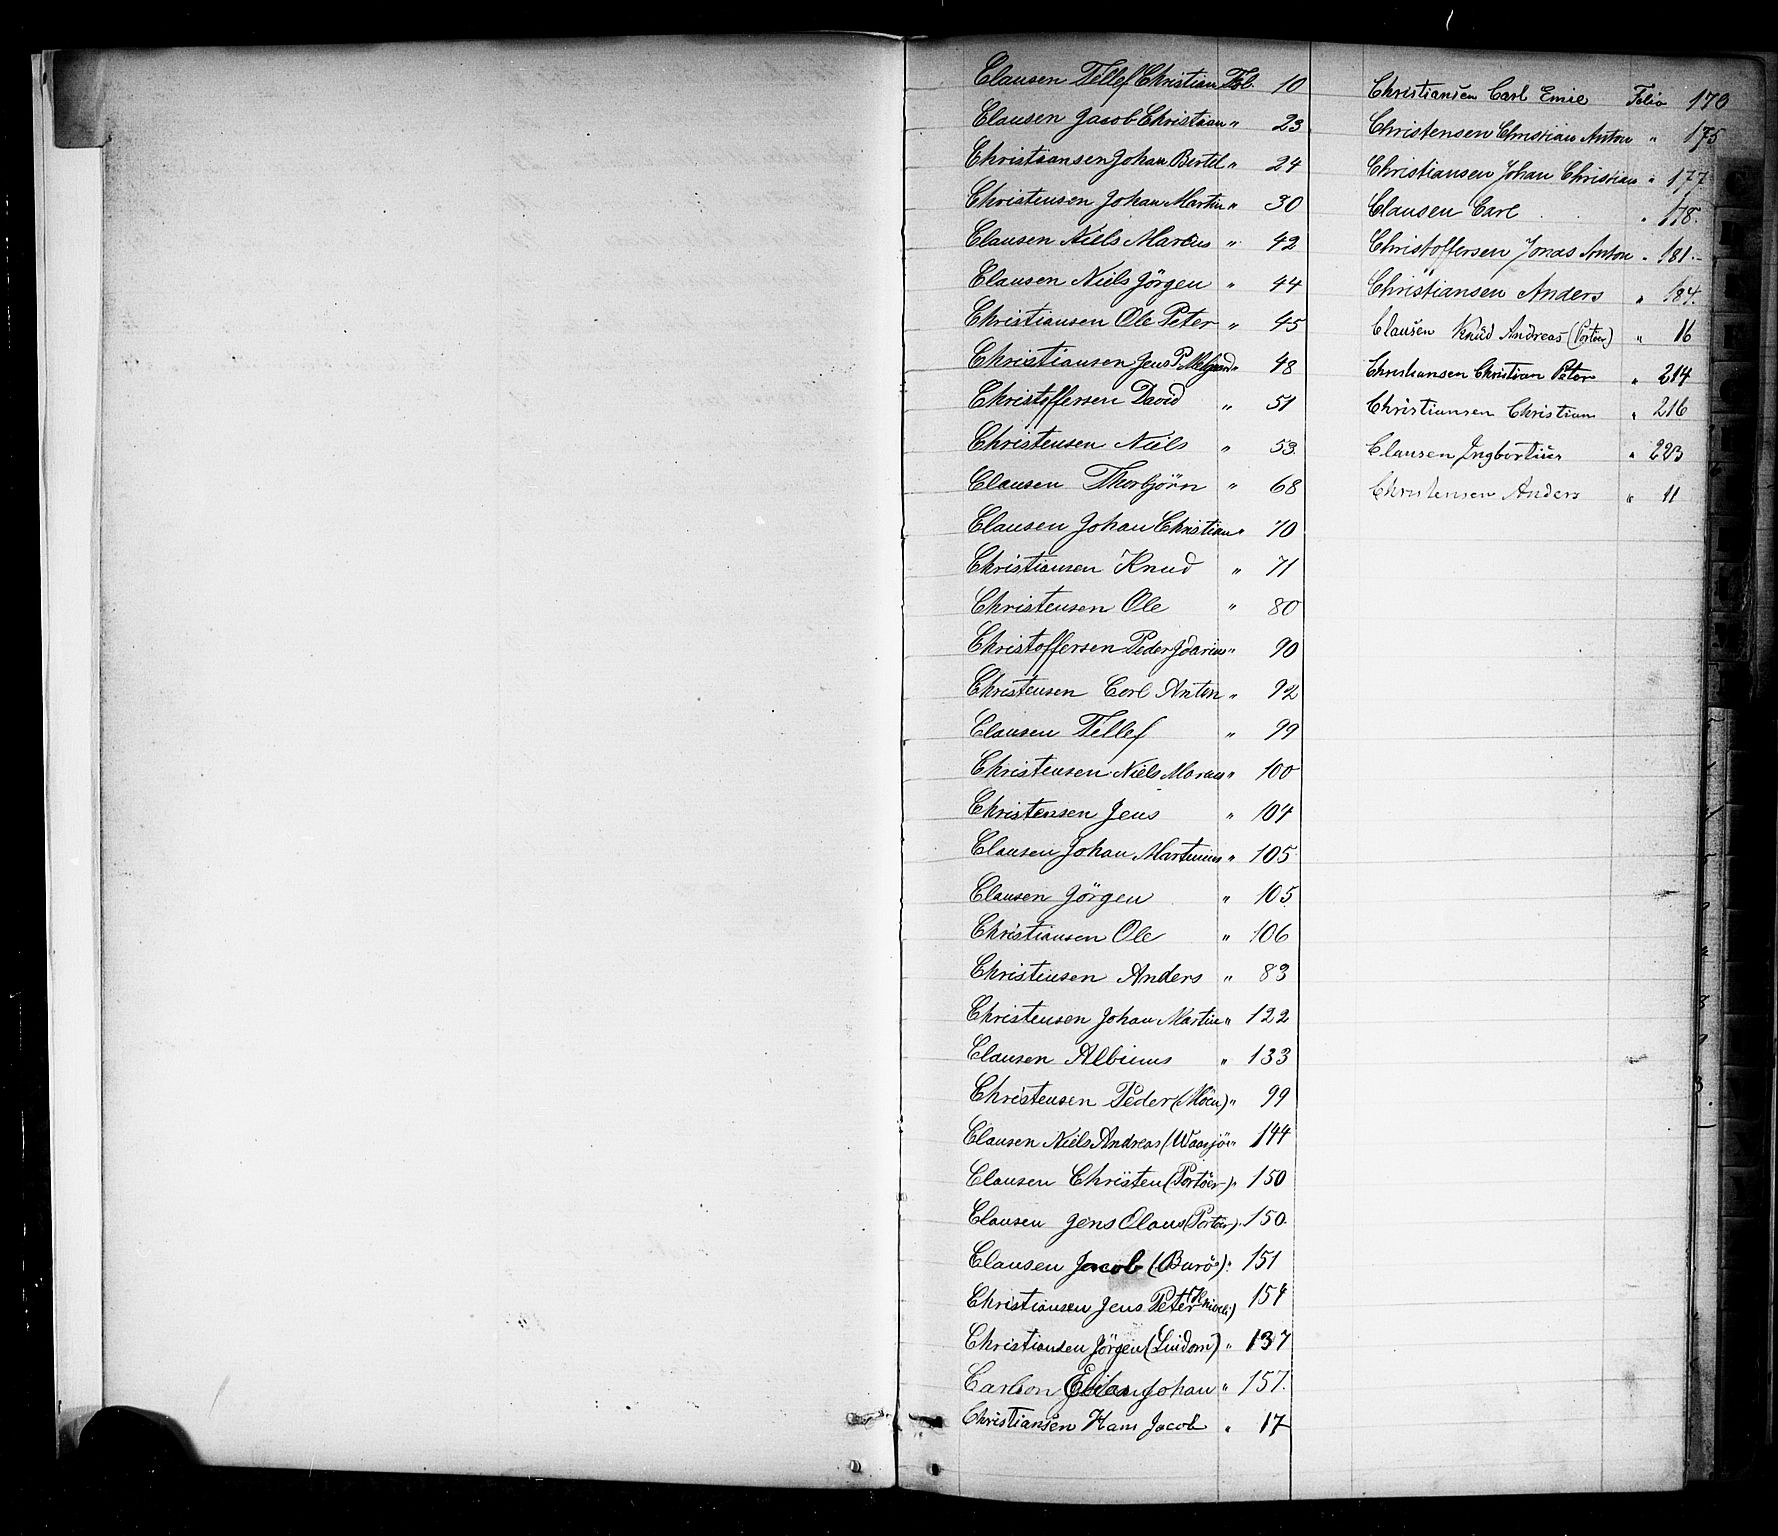 Clausen Tellef Christian Fol. 10
Clausen Jacob Christian " 23
Christiansen Johan Bertel " 24
Christensen Johan Martin " 30
Clausen Niels Marcus " 42
Clausen Niels Jörgen " 44
Christiansen Ole Peter " 45
Christiansen Jens P. " 48
Christoffersen David " 51
Christensen Niels " 53
Clausen Thorbjörn " 68
Clausen Johan Christian " 70
Christiansen Knud " 71
Christensen Ole " 80
Christoffersen Peder " 90
Christensen Carl Anton " 92
Clausen Tellef " 99
Christensen Niels " 100
Christensen Jens " 104
Clausen Johan Martinius " 105
Clausen Jörgen " 105
Christiansen Ole " 106
Christensen Anders " 83
Christensen Johan Martin " 122
Clausen Albinus " 133
Christensen Peder (Möen) " 99
Clausen Niels Andreas " 144
Clausen Christen (Portöer) " 150
Clausen Jens Olaus (Portöer) " 150.
Clausen Jacob (Burö) " 151
Christiansen Jens Peter 154
Christiansen Jörgen " 137
Carlson Johan " 157.
Christiansen Hans Jacob " 17
Christiansen Carl Emil Folio 170
Christensen Christian Anton " 175
Christiansen Johan Christian " 177
Clausen Carl " 178.
Christoffersen Jonas Anton " 181
Christiansen Anders " 184.
Clausen Knud Andreas (Portöer) " 16
Christiansen Christian Peter " 214
Christiansen Christian " 216
Clausen Ingbortius " 223
Christensen Anders " 11